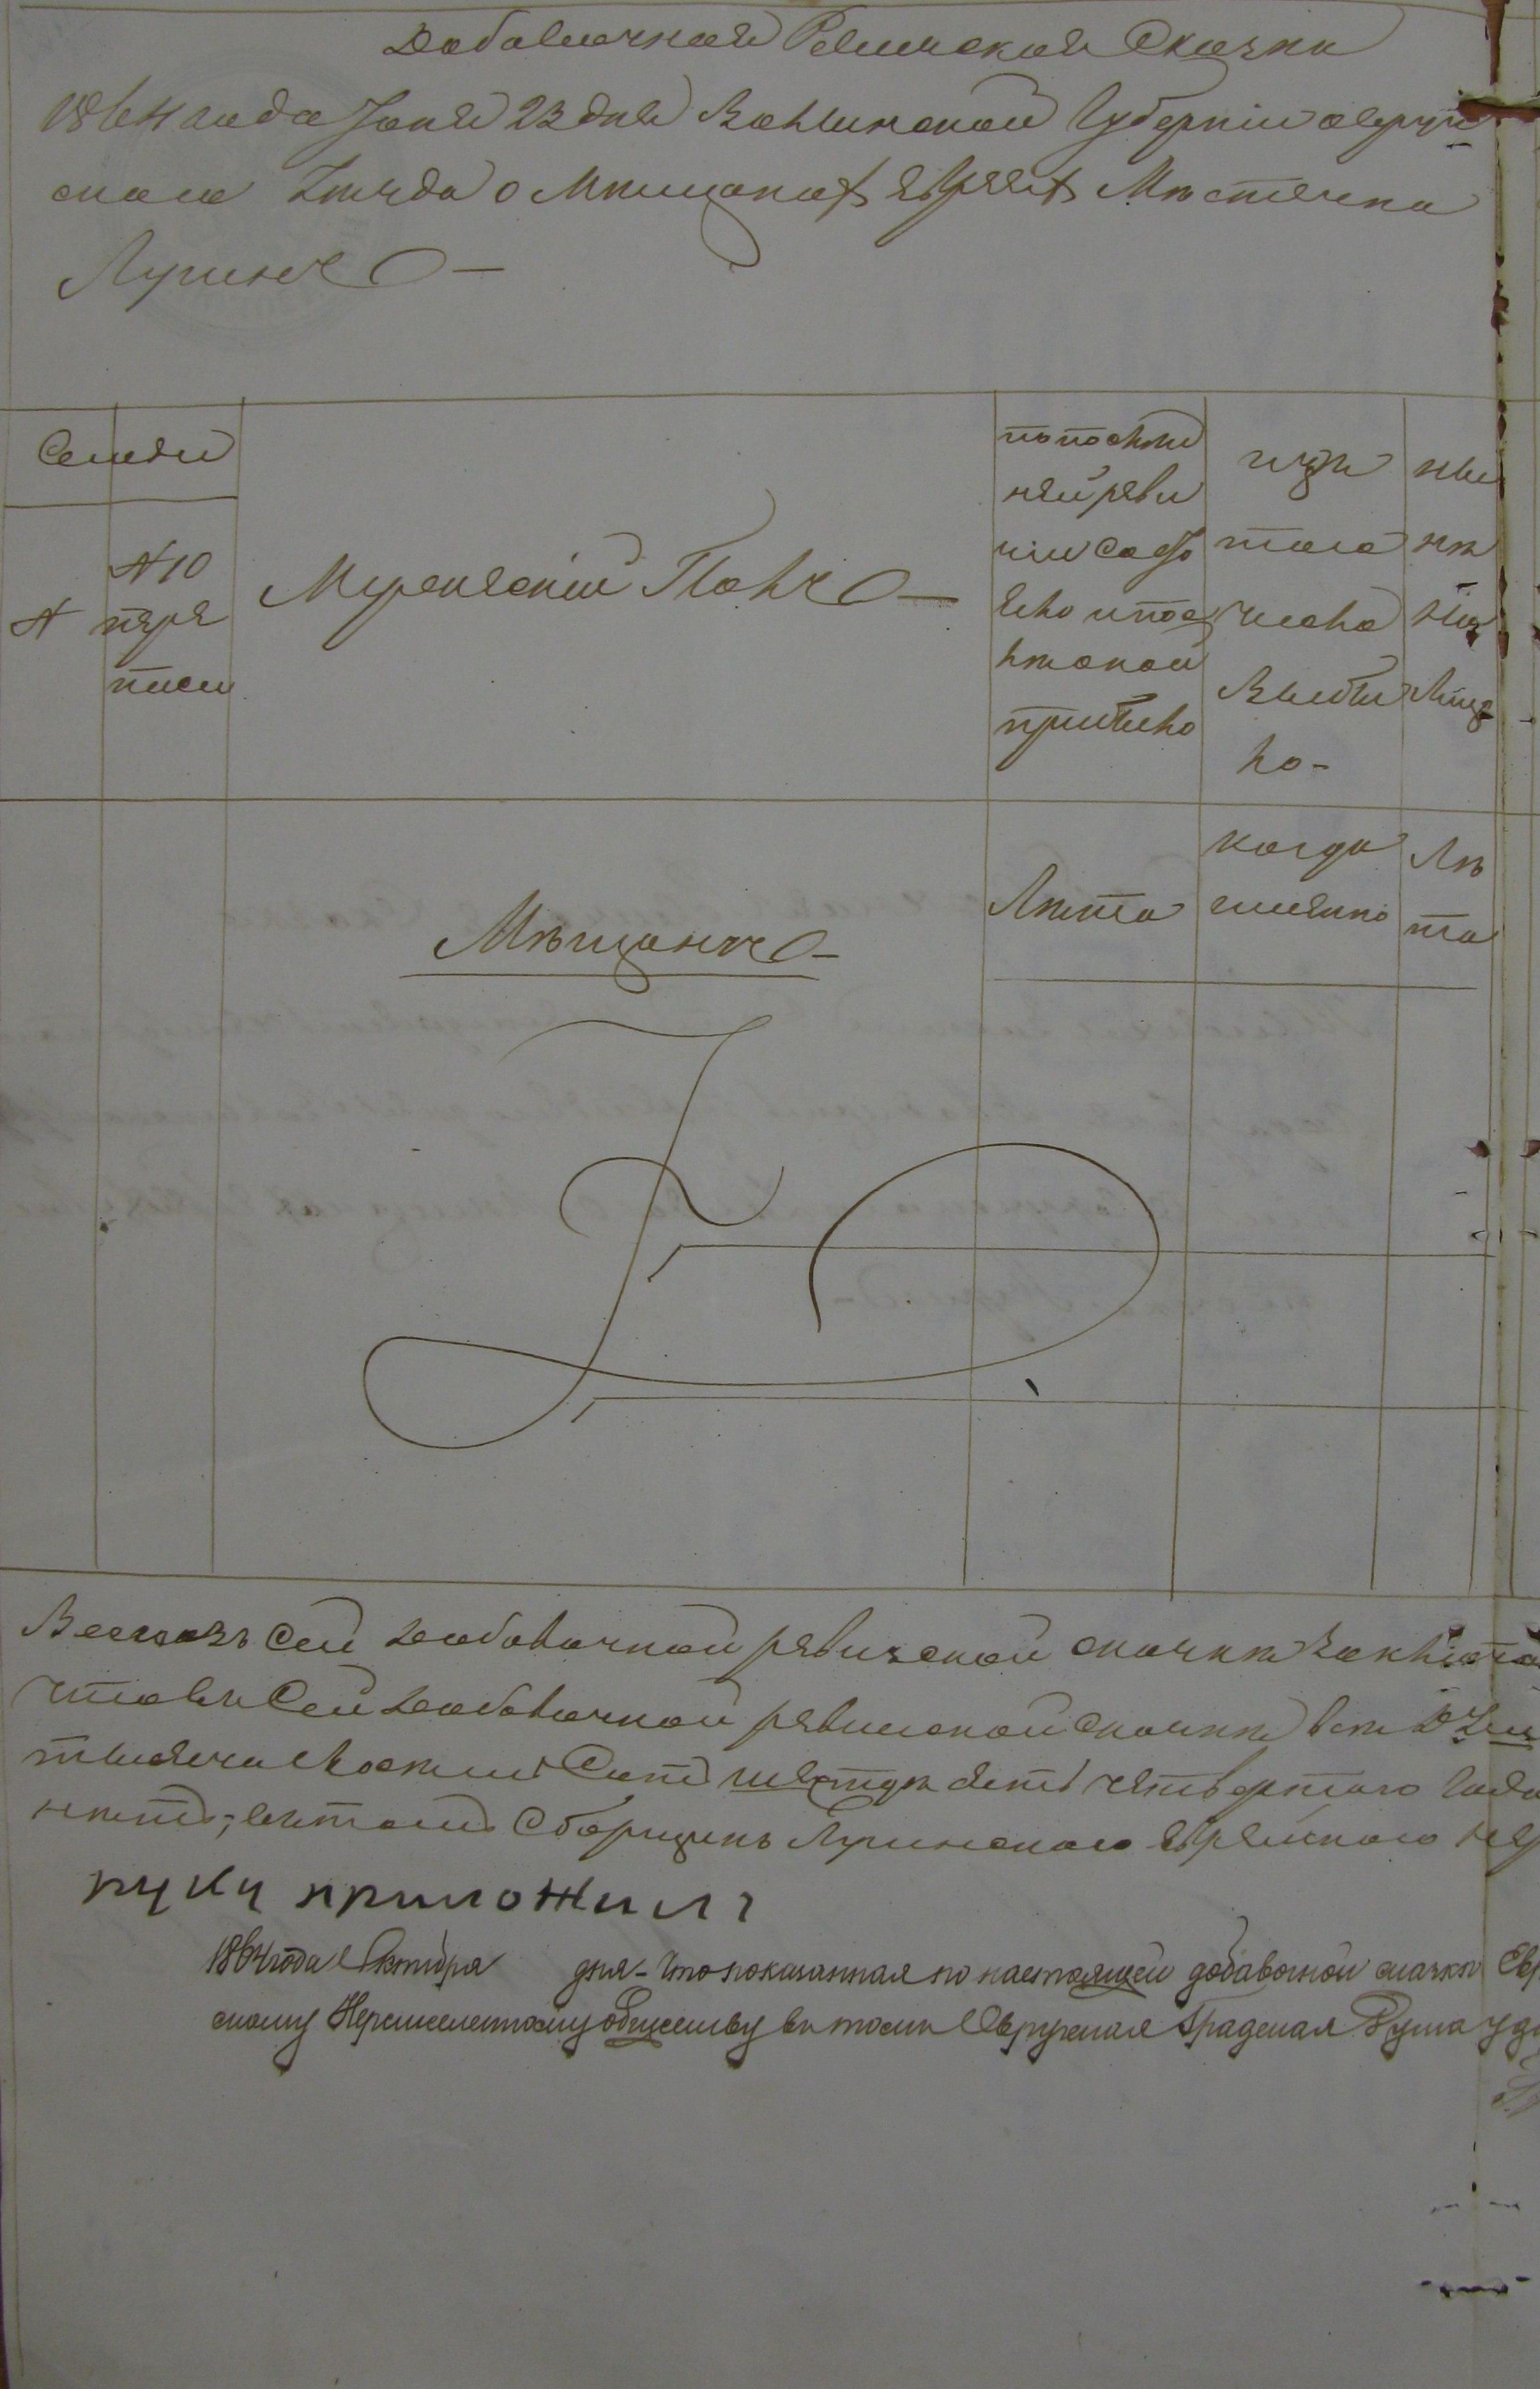 Добавочная Ревизская Сказка
1864 года Іюня 23 дня Волынской Губерніи овруч
скаго Уѣзда о Мѣщанах евреях Мѣстечка
Лугинъ
Семьи
№
№ 10
пере
писи
Мужескій Полъ
по послѣд
ней реви
зіи состо
яло и пос
лѣ оной
прибыло
изъ
того
числа
выбы
ло-
ны
нѣ
на
лицо
Мѣщанъ
Лѣта
когда
имянно
Лѣ
та
сей добавочной ревизской сказкѣ
что въ сей добавочной ревизской сказкѣ
тысяча восемь Сотъ шестдесятъ четвертого года
нѣтъ; въ томъ Сборщикъ Лугинскаго еврейскаго
руку приложилъ
1864 года Октября дня - Что показанная по настоящей добавочной сказкѣ Евр
скому обществу въ томъ Овручская Градская Дума удо